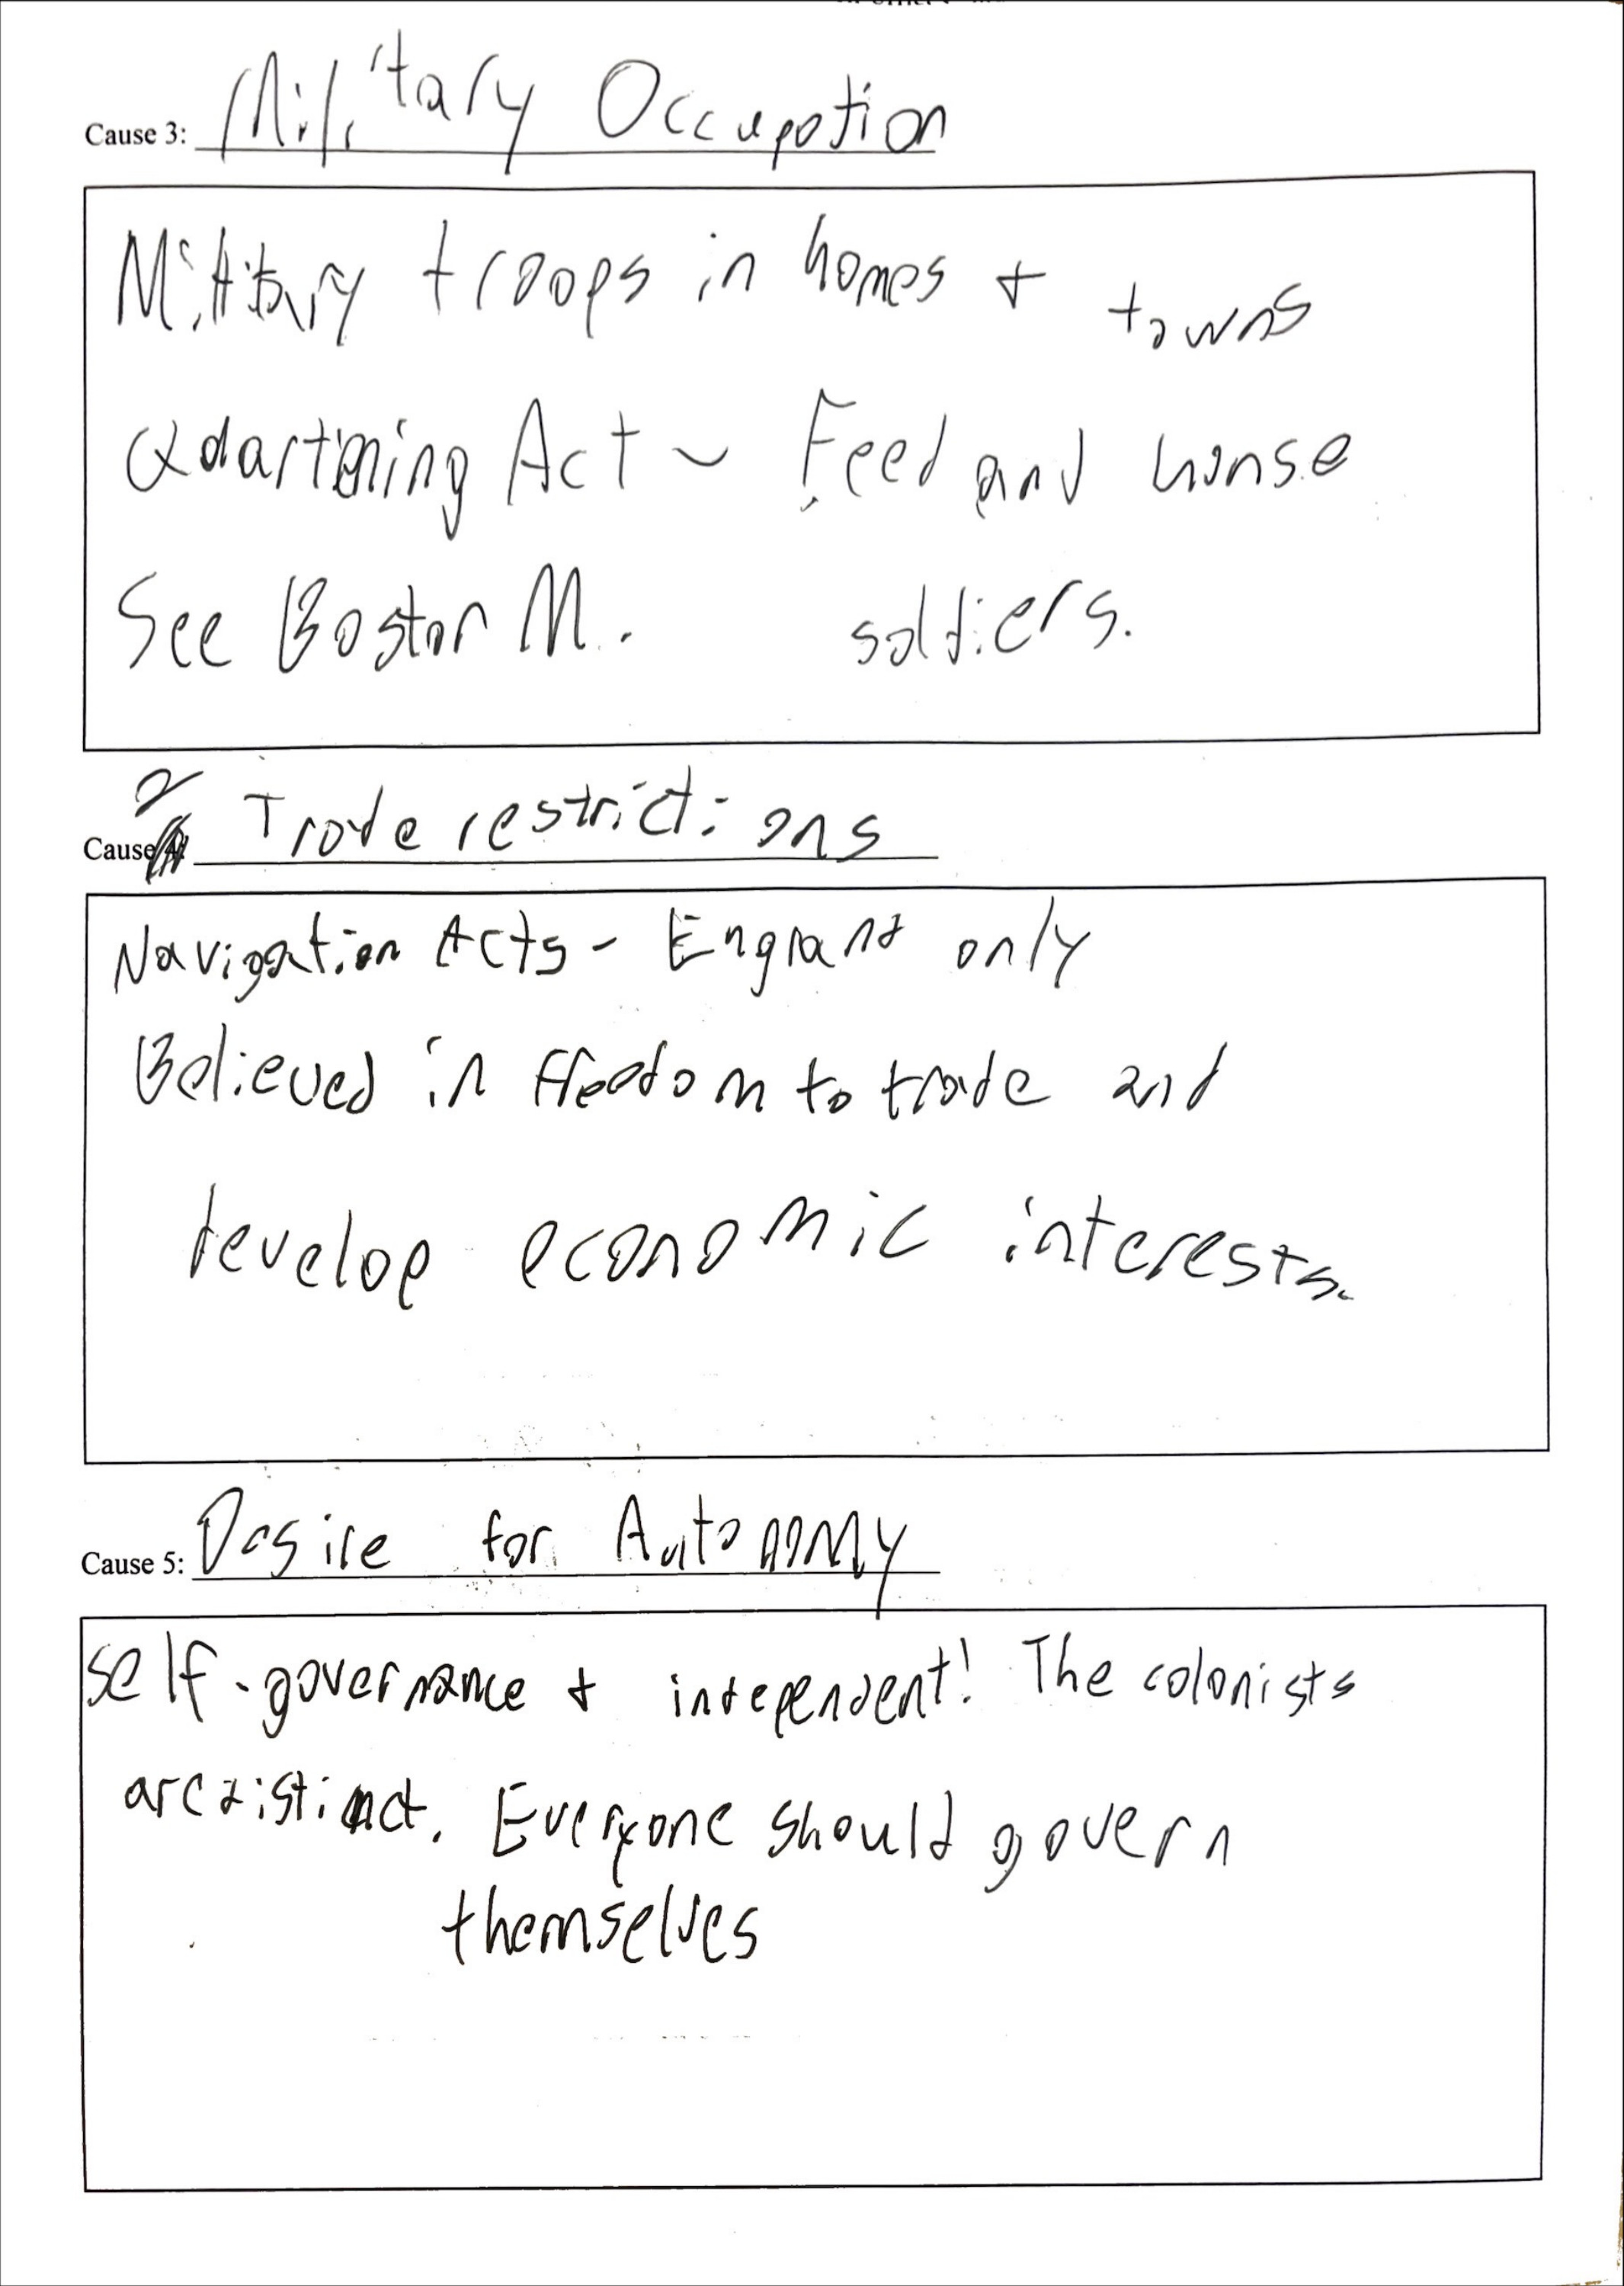 Cause 3: Military Occupation
Military troops in homes + towns
Quartering Act ~ Feed and house
See Boston M. soldiers.
2
Cause Trade restrictions
Navigation Acts - England only
Believed in freedom to trade and
develop economic interests.
Cause 5: Desire for Autonomy
self-governance + independent! The colonists
are distinct. Everyone should govern
themselves